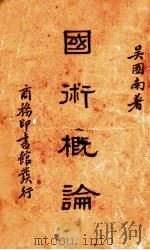 吳圖南著
國術概論
商務印書館發行